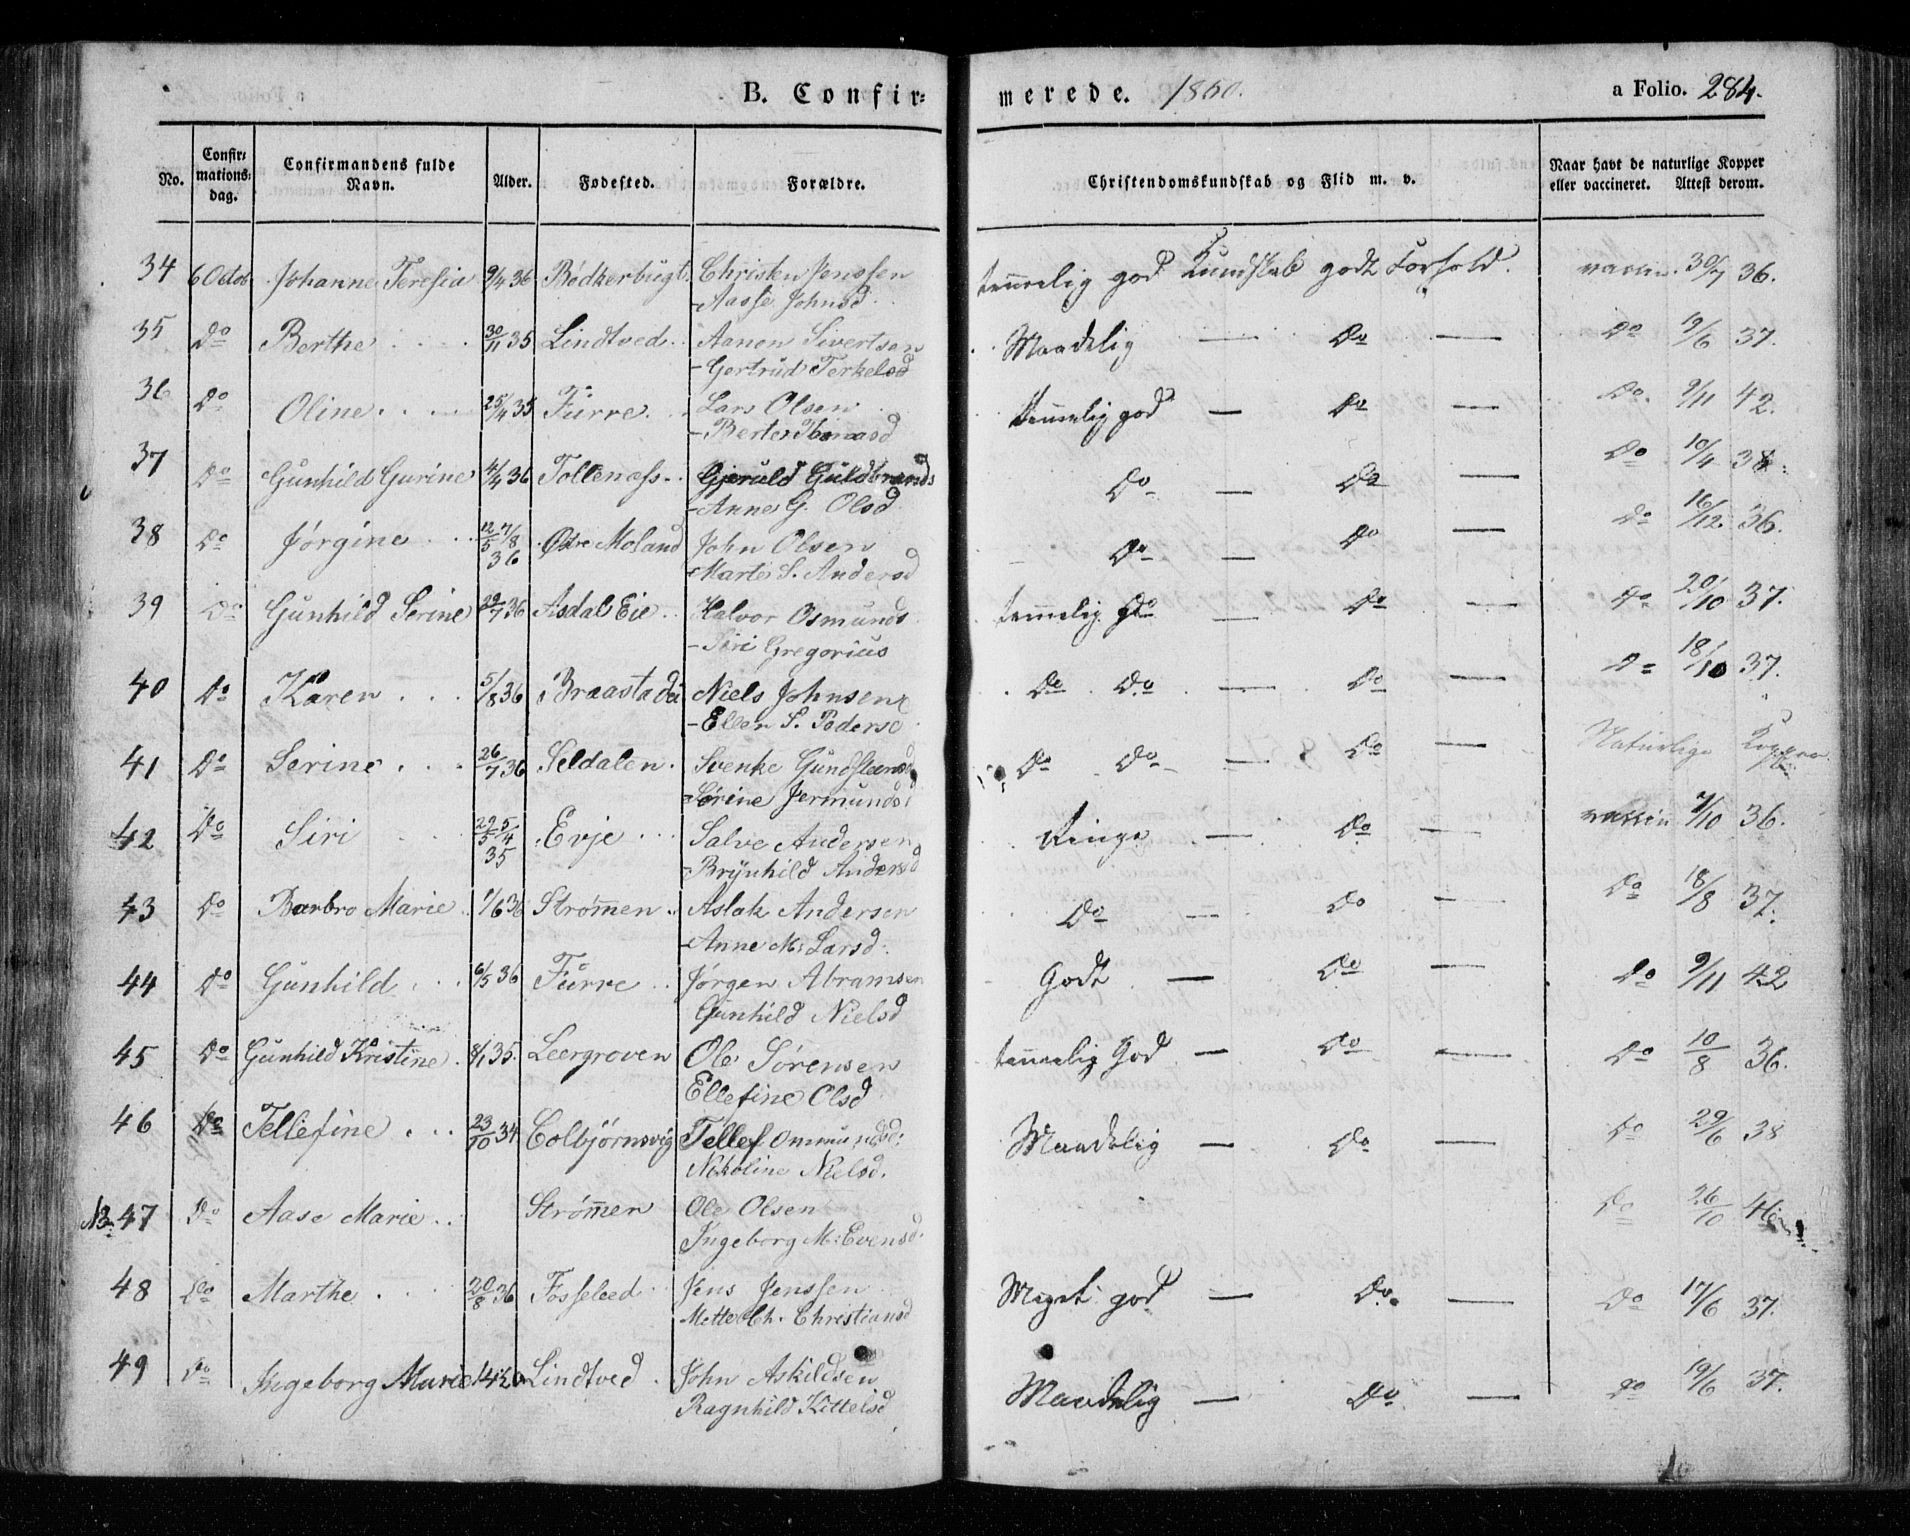 B. Confirmerede. 1850. a Folio. 284.
No. Confirmationsdag. Confirmandens fulde Navn. Alder. Fødested. Forældre. Christendomskundskab og Flid m. v. Naar havt de naturlige Kopper eller vaccineret. Attest derom.
34 6 Octob Johanne Teresia 9/4 36 Bødkerbugt. Christen Jenssen temmelig god Kundskab godt Forhold. vaccin. 30/7 36.
- Aasse Johnsd.
35 Do Berthe 30/11 35 Lindtved Aanen Sivertsen Maadelig — Do — Do 19/6 37.
- Gertrud Terkelsd
36 Do Oline 25/4 35 Furre Lars Olsen temmelig god — Do — Do 9/11 42.
- Berte Thomasd
37 Do Gunhild Gurine 4/4 36 Tollenæss Gjeruld Guldbrands Do — Do — Do 10/4 38.
- Anne G. Olsd.
38 Do Jørgine 12/5 7/8 36 Østre Moland John Olsen Do — Do — Do 16/12 36.
Marte S. Andersd
39 Do Gunhild Serine 29/7 36 Asdal Eie Halvor Osmunds temmelig Do — Do — Do 20/10 37.
- Siri Gregorius
40 Do Karen 5/8 36 Braastad Niels Johnsen Do Do — Do — Do 18/10 37.
- Ellen S. Peders
41 Do Serine 26/7 36 Seldalen Svenke Gundsteens Do Do — Do — Naturlige Kopper
- Sørine Jermunds
42 Do Siri 29/5 5/4 35 Evje Salve Andersen Ringe — Do — vaccin 7/10 36.
- Brynhild Andersd
43 Do Barbro Marie 1/6 36 Strømmen Aslak Andersen Do — Do — Do 18/8 37.
- Anne M. Larsd.
44 Do Gunhild 6/5 36 Furre Jørgen Abramsen Godt — Do — Do 9/11 42
Gunhild Nielsd
45 Do Gunhild Kristine 8/1 35. Leergroven Ole Sørensen temmelig God — Do — Do 10/8 36.
Ellefine Olsd
46 Do Tellefine 23/10 34 Colbjørnsvig Tellef Ommundsd: Maadelig — Do — Do 29/6 38
Nikoline Nielsd.
NB 47 Do Aase Marie Strømmen Ole Olsen Do 26/10
Ingeborg M: Evensd.
48 Do Marthe 20/8 36 Fosseleed Jens Jenssen Meget god — Do — Do 17/6 37.
Mette Ch. Christiansd
49 Do Ingeborg Marie Lindtved John Askildsen Maadelig — Do — Do 19/6 37.
Ragnhild Kittelsd